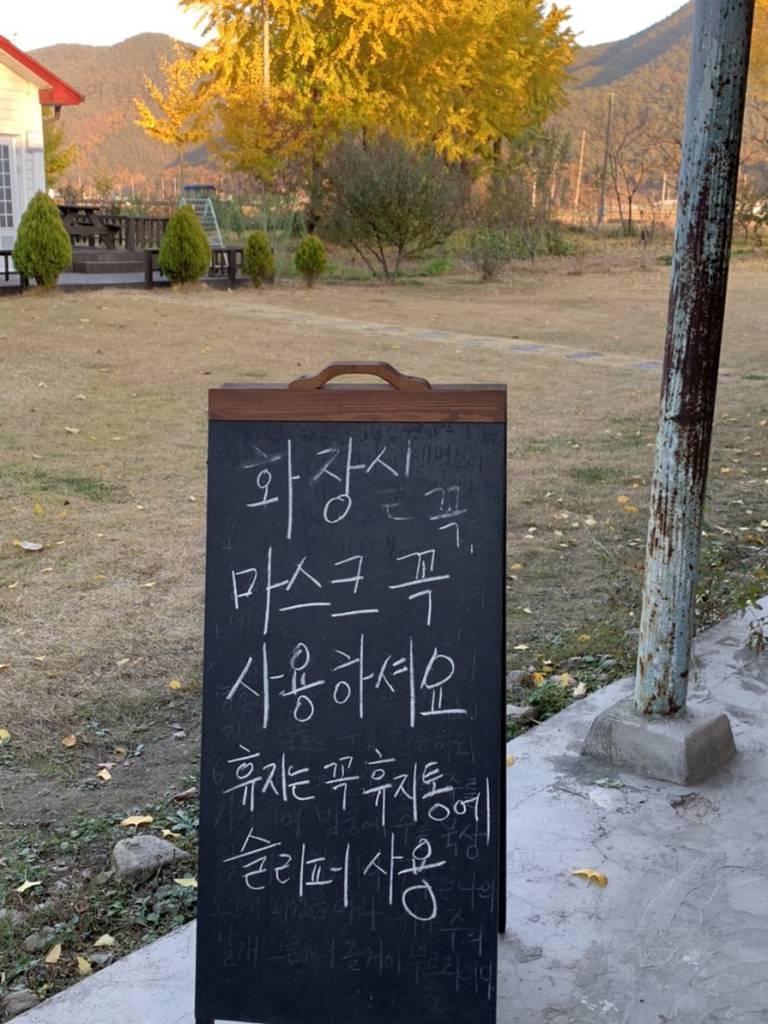 화장실 꼭,
마스크 꼭
사용하세요
휴지는 꼭 휴지통에
슬리퍼 사용